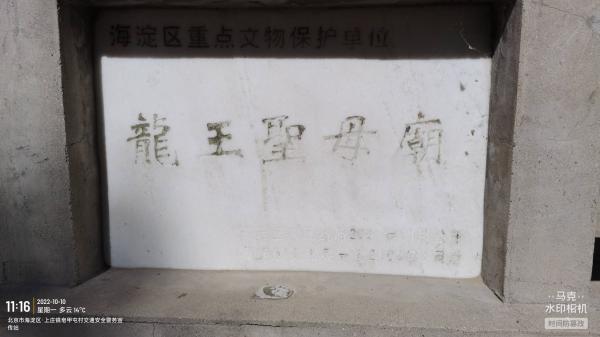 海淀区重点文物保护单位
龍王聖母廟
11:16
2022-10-10
星期一 多云 14℃
北京市海淀区·上庄镇皂甲屯村交通安全警务宣
传站
马克
水印相机
时间防篡改